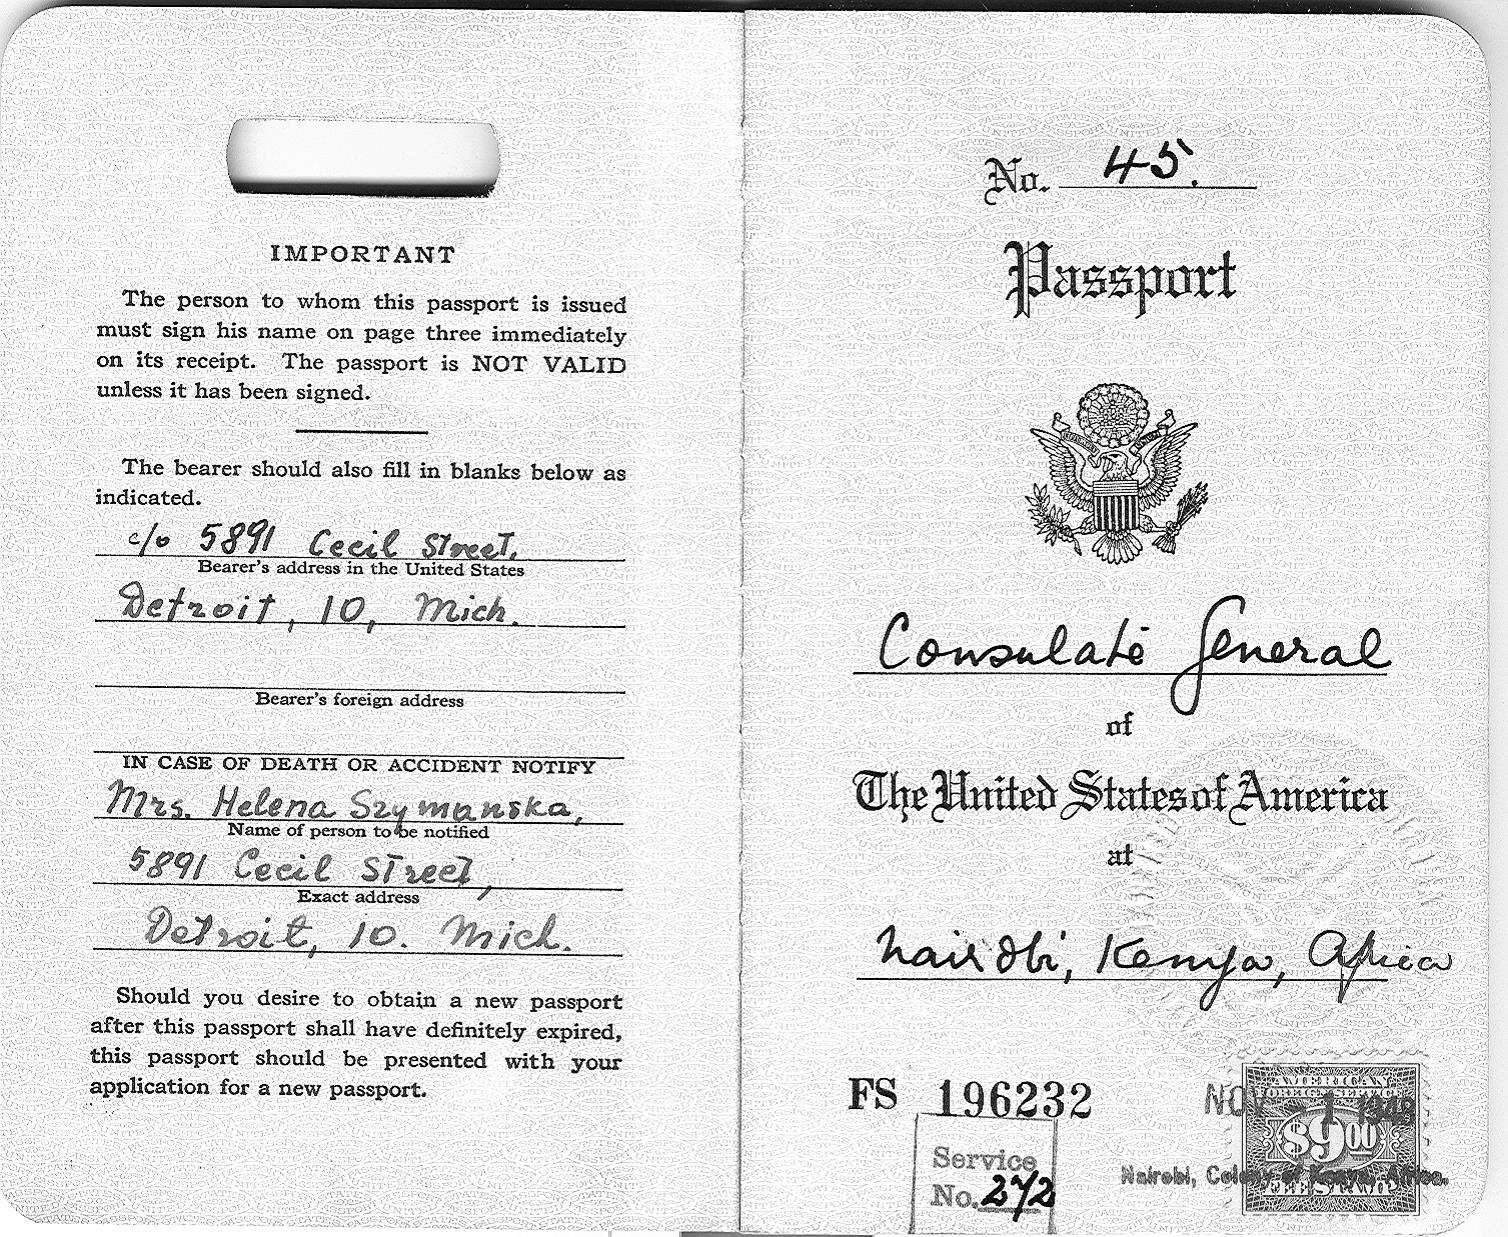 IMPORTANT
The person to whom this passport is issued
must sign his name on page three immediately
on its receipt. The passport is NOT VALID
unless it has been signed.
The bearer should also fill in blanks below as
indicated.
c/o 5891 Cecil Street,
Bearer's address in the United States
Detroit, 10, Mich.
Bearer's foreign address
IN CASE OF DEATH OR ACCIDENT NOTIFY
Mrs. Helena Szymanska,
Name of person to be notified
5891 Cecil Street,
Exact address
Detroit, 10. Mich.
Should you desire to obtain a new passport
after this passport shall have definitely expired,
this passport should be presented with your
application for a new passport.
No. 45.
Passport
Consulate General
of
The United States of America
at
Nairobi, Kenya, Africa
FS 196232
Service
No. 272
AMERICAN
FOREIGN SERVICE
NOV - 1
$9.00
Nairobi, Colony of Kenya, Africa.
FEE STAMP